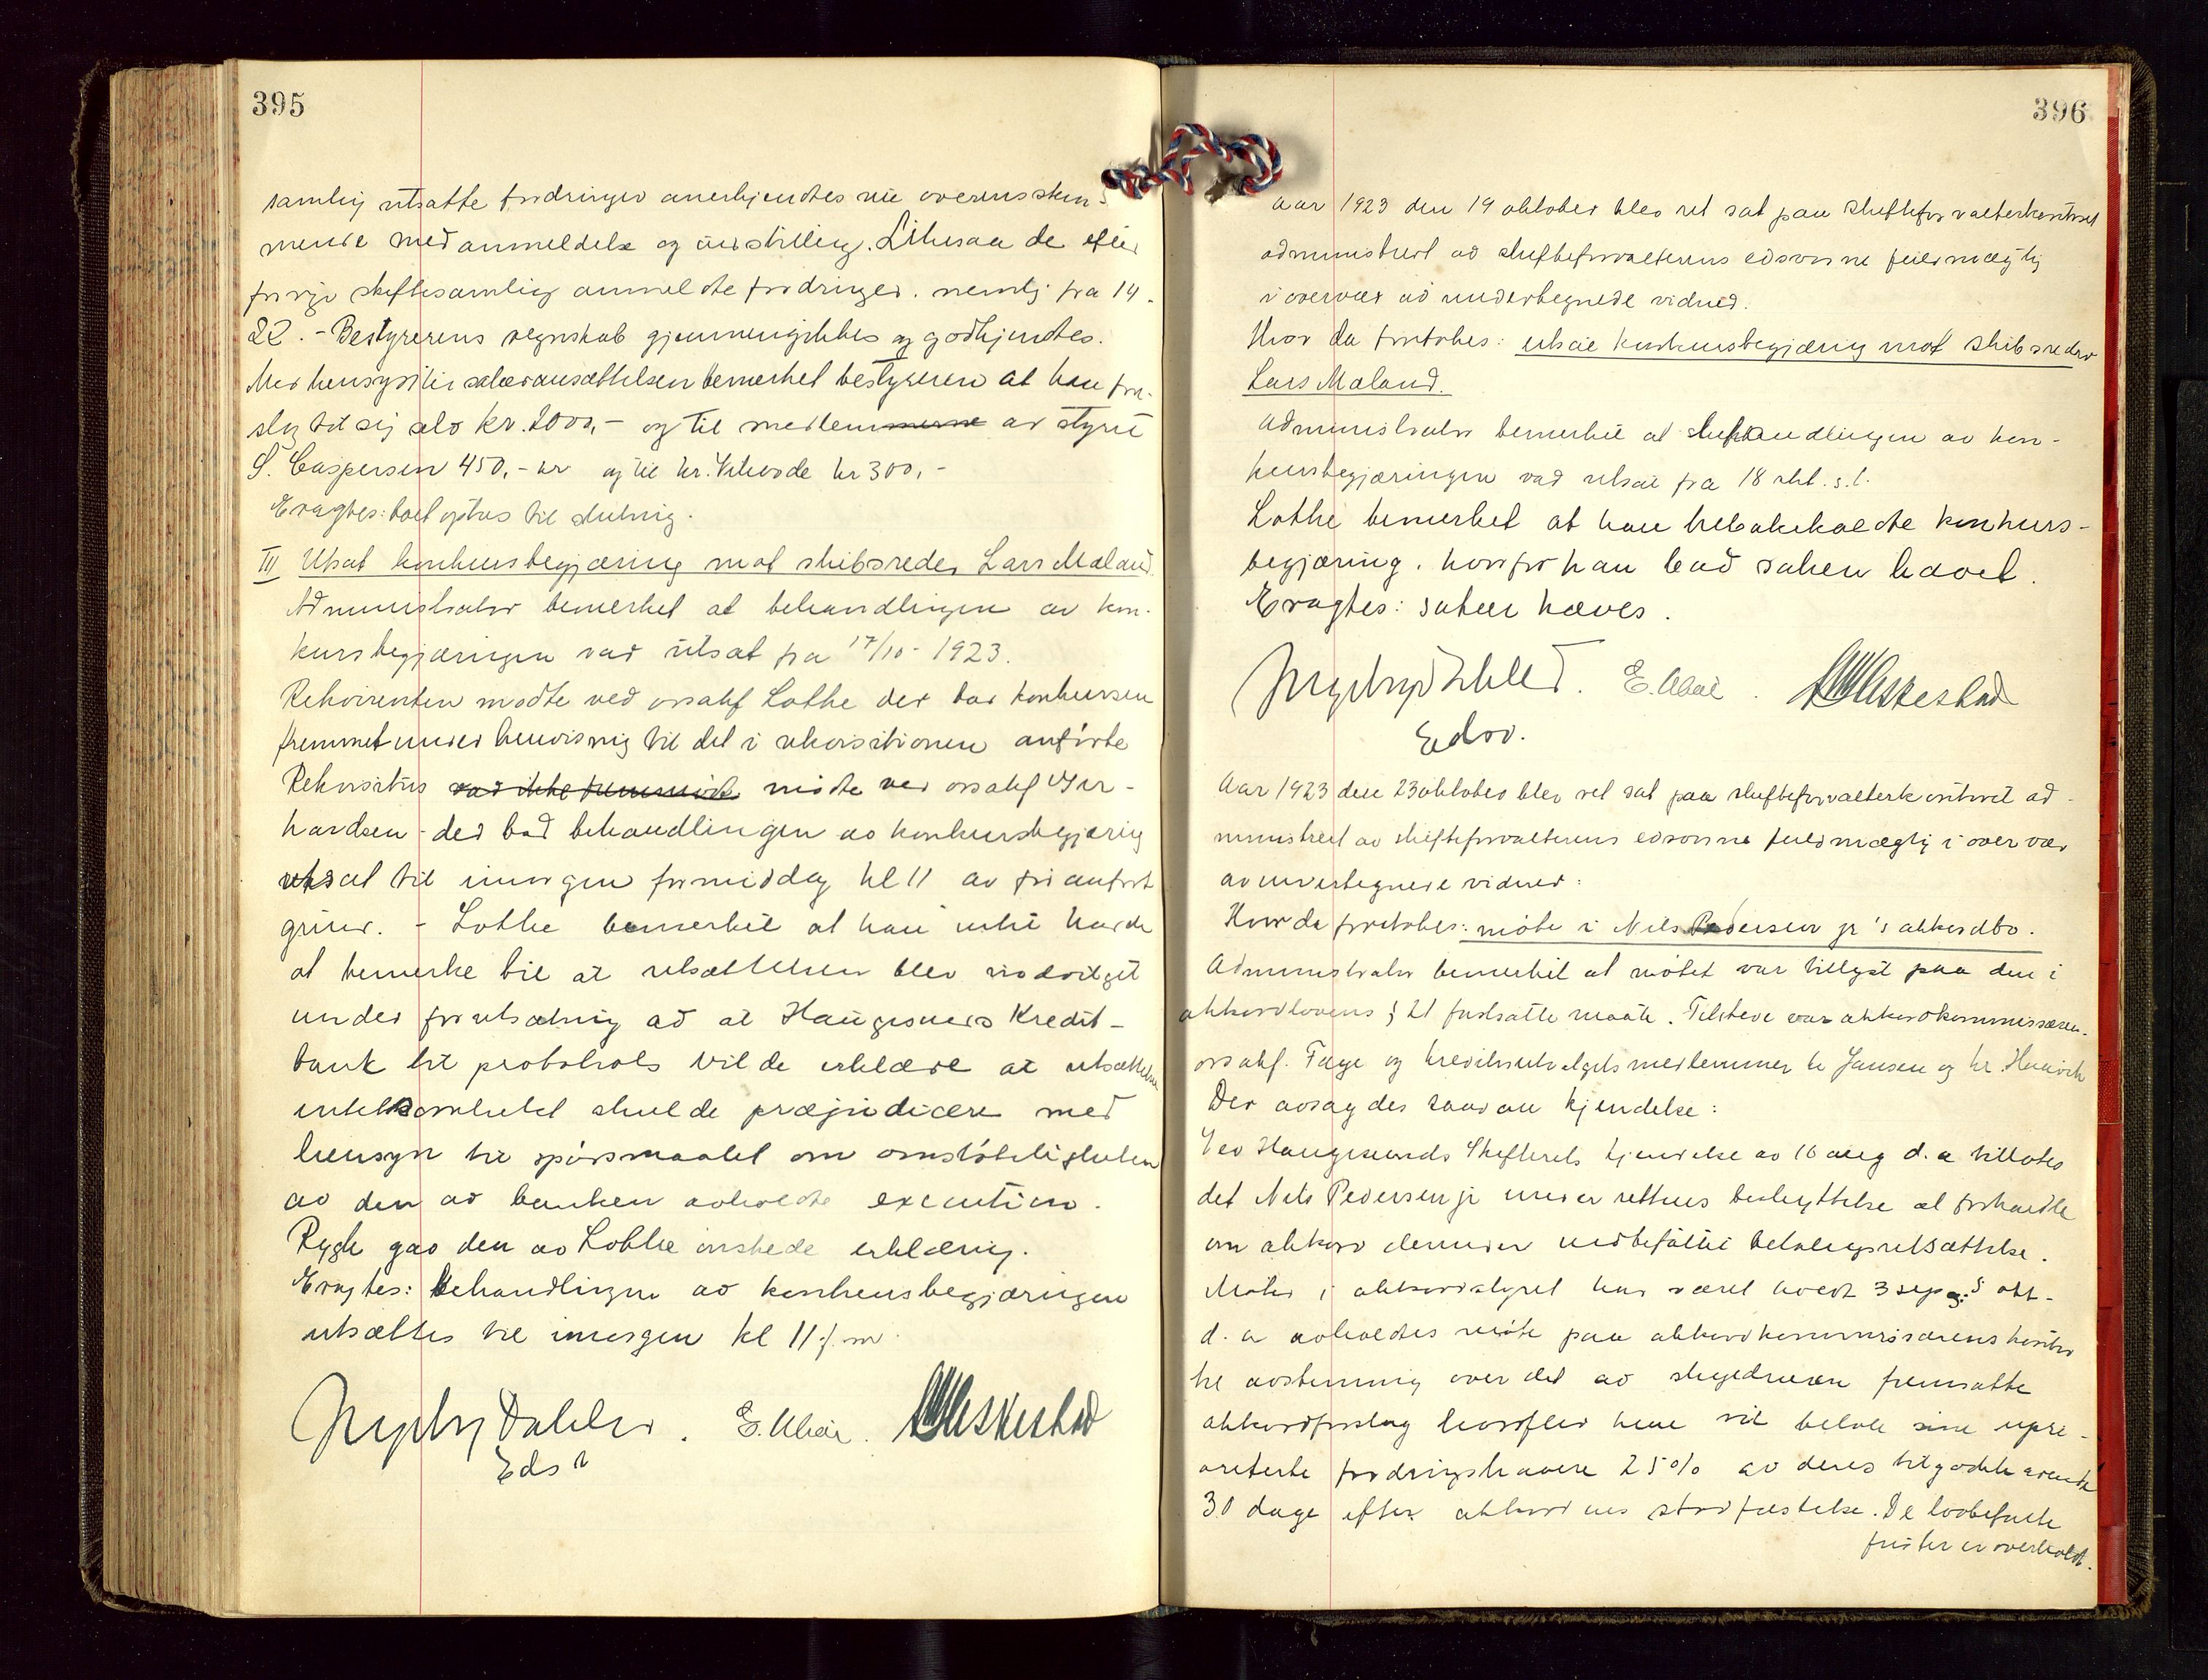 395
samling utsatte fordringer anerkjendtes nu overensstem-
mende med anmeldelse og indstilling. Likesaa de efter
forrige skiftesamling anmeldte fordringer. nemlig fra 14-
22. - Bestyrerens regnskab gjennemgikkes og godkjendtes.
Med hensyn til salæransættelsen bemerket bestyreren at han fore-
slog til sig selv kr. 2000,- og til medlemmerne av styret
S. Caspersen 450,- kr og til hr. kr 300,-
Eragtes: boet optas til slutning.
III Utsat konkursbegjæring mot skibsreder Lars Maland
Administrator bemerket at behandlingen av kon-
kursbegjæringen var utsat fra 17/10 - 1923.
Rekvirenten mødte ved orsakf Lothe der bad konkursen
fremmet under henvisning til det i rekvisitionen anførte
Rekvisitus var ikke fremmødt mødte ved orsakf Ger-
hardsen - der bad behandlingen av konkursbegjæring
utsat til imorgen formiddag kl 11 av før anført
grund. - Lothe bemerket at han intet havde
at bemerke til at utsættelsen blev indvilget
under forutsætning av at Haugesunds Kredit-
bank til protokols vilde erklære at utsættelsen
intetsomhelst skulde præjudicere med
hensyn til spørsmaalet om omstøteligheten
av den av banken avholdte execution.
Rygh gav den av Lothe ønskede erklæring.
Eragtes: Behandlingen av konkursbegjæringen
utsættes til imorgen kl 11 f.m.
Dahler. E. Aase.
Edsv
396
Aar 1923 den 19 oktober blev ret sat paa skifteforvalterkontoret
administrert av skifteforvalterens edsvorne fuldmægtig
i overvær av undertegnede vidner.
Hvor da foretokes: utsat konkursbegjæring mot skibsreder
Lars Maland.
Administrator bemerket at behandlingen av kon-
kursbegjæringen var utsat fra 18 okt. s.l.
Lothe bemerket at han tilbakekaldte konkurs-
begjæring. hvorfor han bad saken hævet.
Eragtes: saken hæves.
E. Aase.
Edsv.
Aar 1923 den 23 oktober blev ret sat paa skifteforvalterkontoret ad-
ministrert av skifteforvalterens edsvorne fuldmægtig i overvær
av undertegnede vidner:
Hvor da foretokes: møte i Nils Pedersen jr's akkordbo.
Administrator bemerket at møtet var tillyst paa den i
akkordlovens § 21 fastsatte maate. Tilstede var akkordkommissæren-
orsakf. Fage og kreditorutvalgets medlemmer hr Jansen og hr.
Der avsagdes saadan kjendelse:
Ved Haugesunds Skifterets kjendelse av 16 aug d.a tillotes
det Nils Pedersen jr under rettens beskyttelse at forhandle
om akkord derunder indbefattet betalingsutsættelse.
Møter i akkordstyret har været holdt 3 sep. 5 okt-
d. a avholdtes møte paa akkordkommissærens kontor
til avstemning over det av skyldneren fremsatte
akkordforslag hvorefter han vil betale sine upri-
oriterte fordringshavere 25% av deres tilgodehavende
30 dage efter akkordens stadfæstelse. De lovbefalte
frister er overholdt.